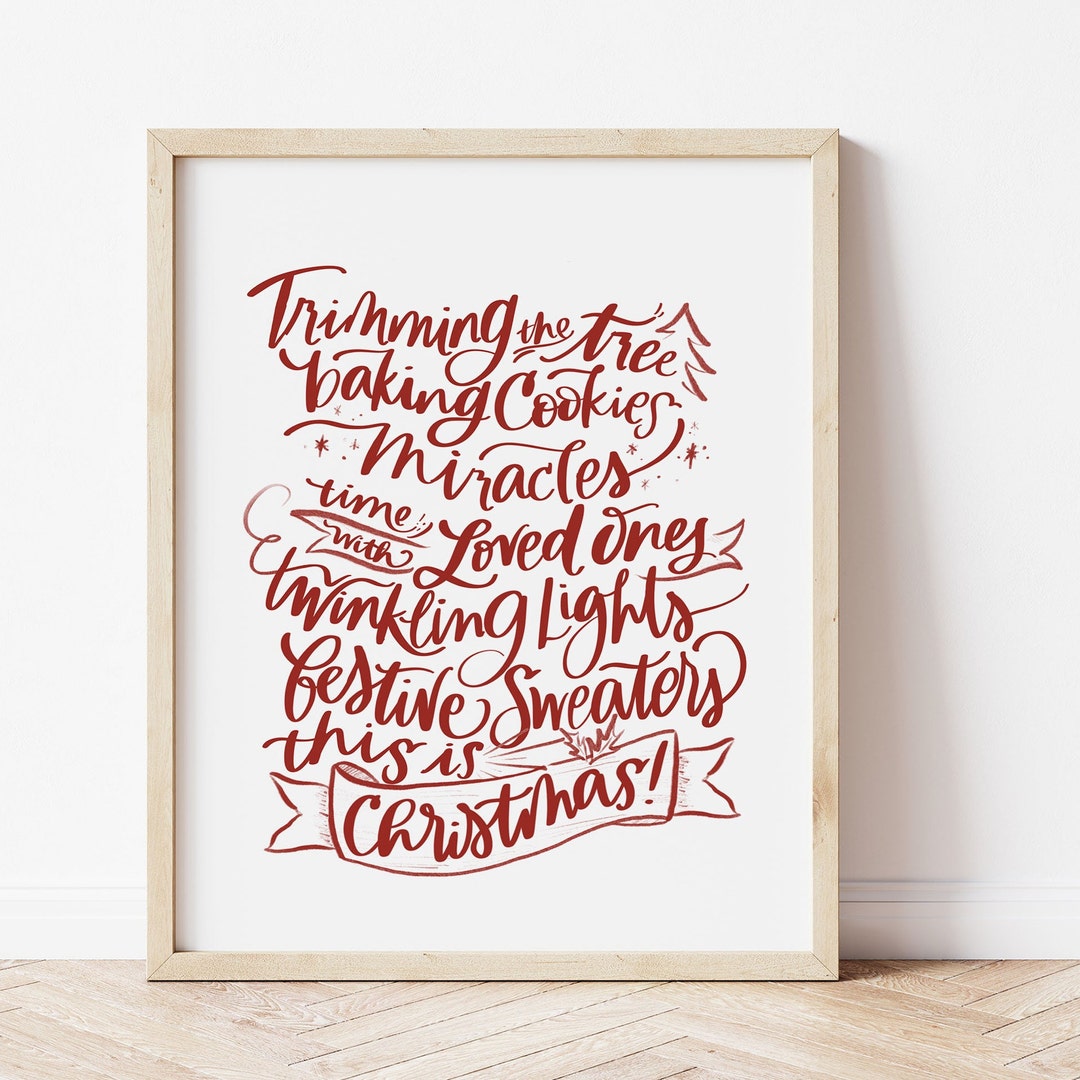 Trimming the tree
baking Cookies
Miracles
time with Loved Ones
twinkling Lights
festive Sweaters
this is
Christmas!